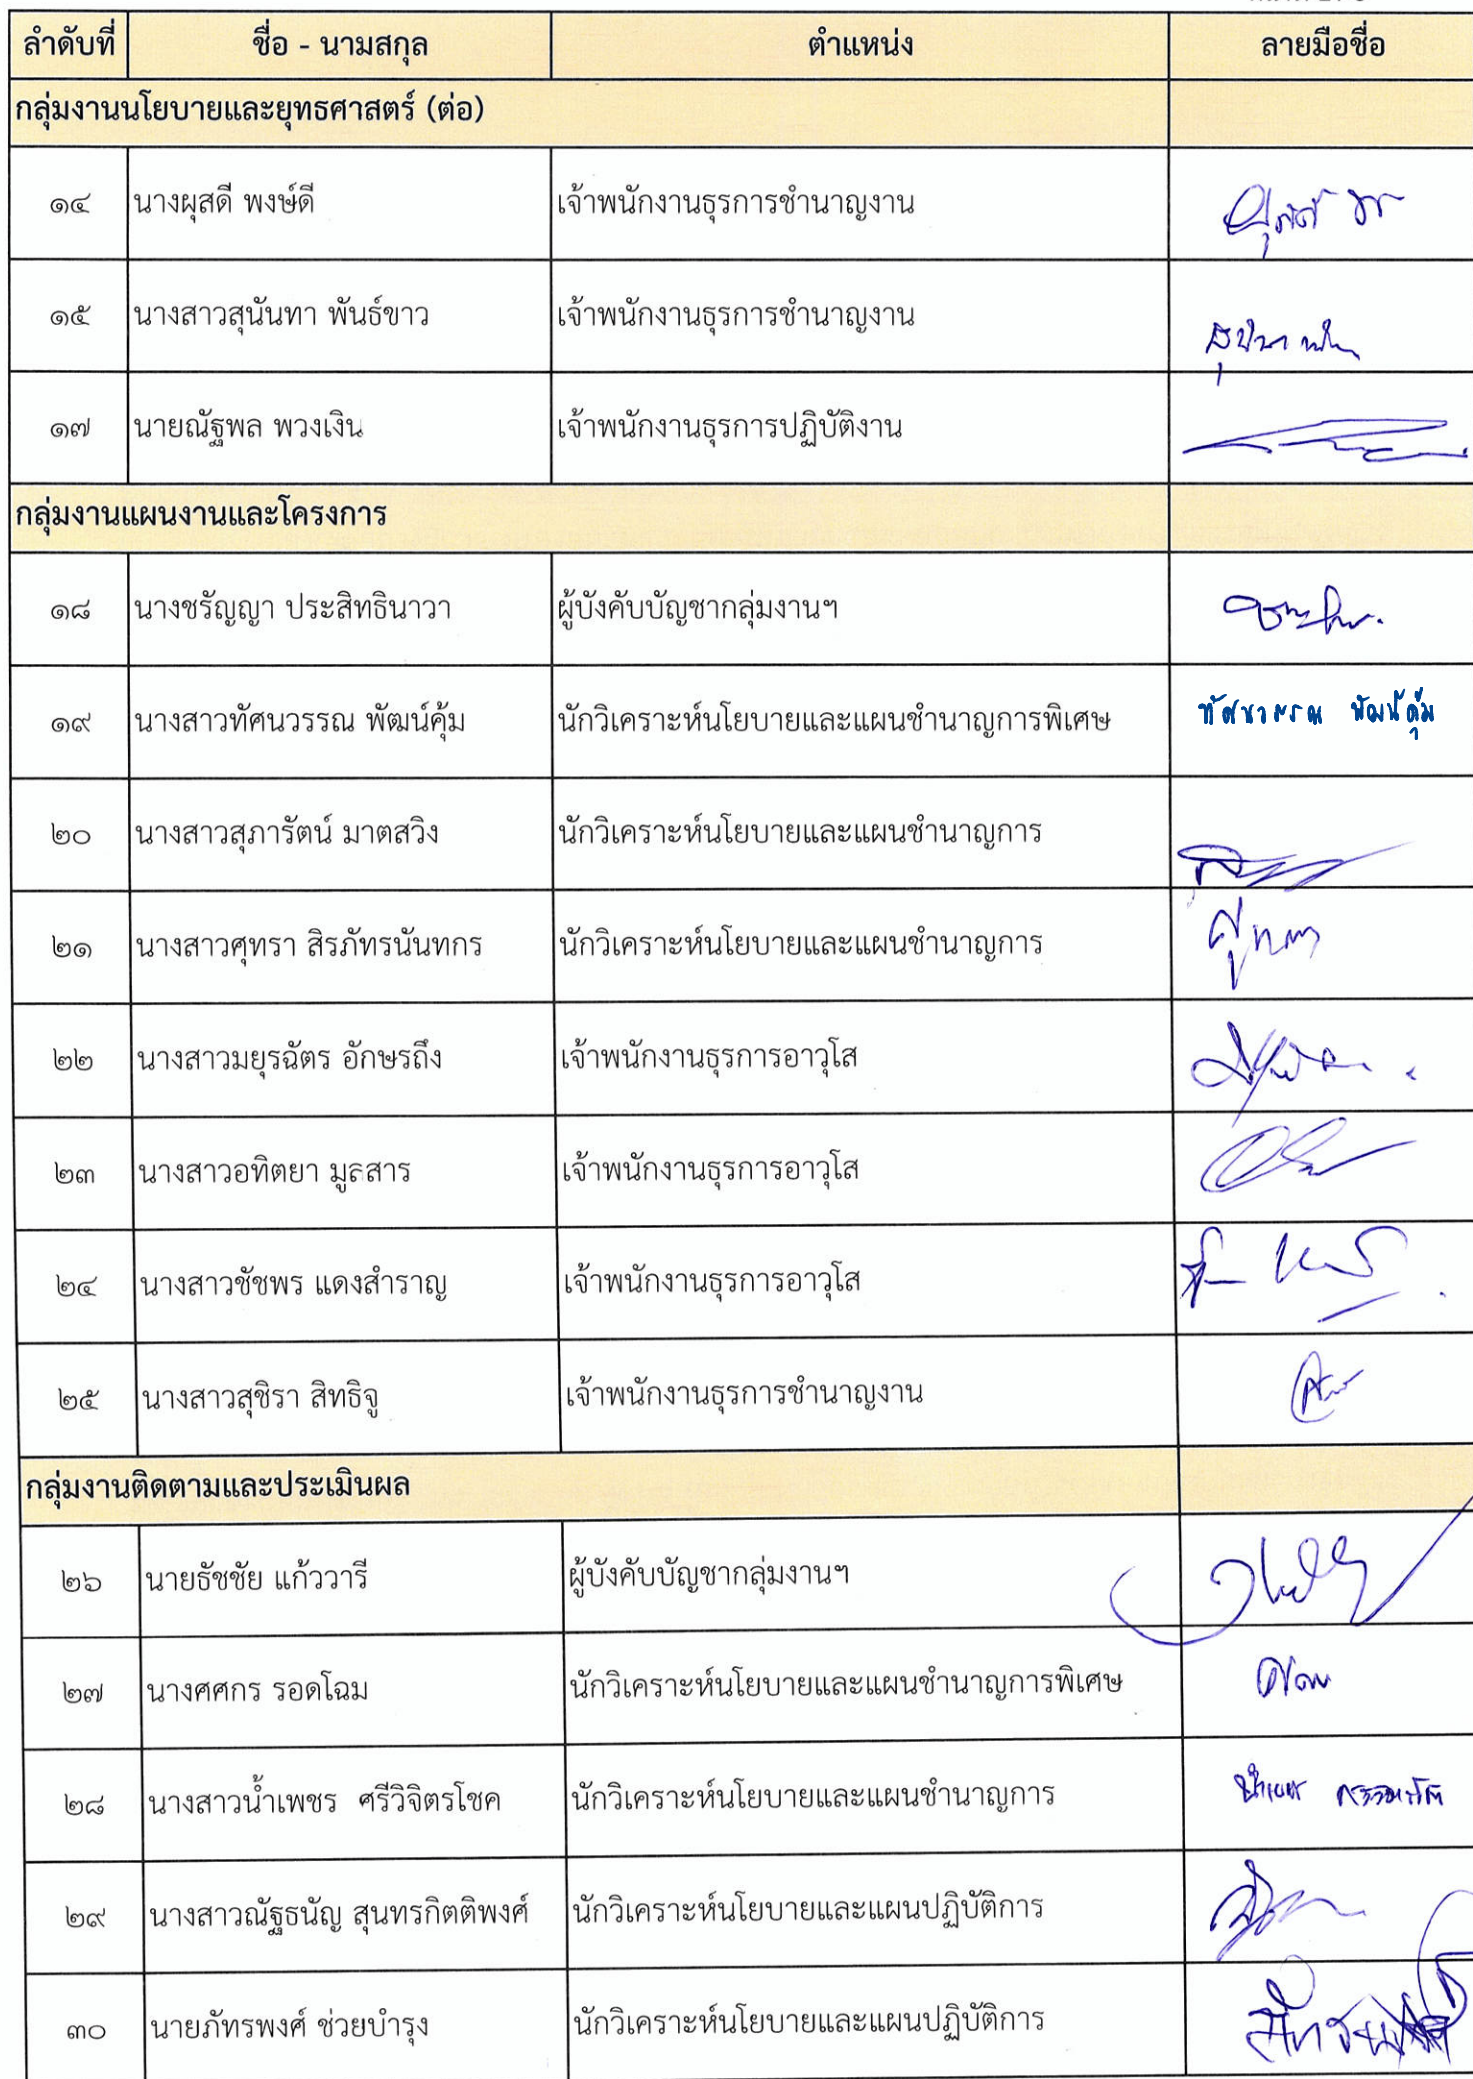 ลำดับที่ ชื่อ - นามสกุล ตำแหน่ง ลายมือชื่อ
กลุ่มงานนโยบายและยุทธศาสตร์ (ต่อ)
๑๔ นางผุสดี พงษ์ดี เจ้าพนักงานธุรการชำนาญงาน
๑๕ นางสาวสุนันทา พันธ์ขาว เจ้าพนักงานธุรการชำนาญงาน
๑๗ นายณัฐพล พวงเงิน เจ้าพนักงานธุรการปฏิบัติงาน
กลุ่มงานแผนงานและโครงการ
๑๘ นางชรัญญา ประสิทธินาวา ผู้บังคับบัญชากลุ่มงานฯ
๑๙ นางสาวทัศนวรรณ พัฒน์คุ้ม นักวิเคราะห์นโยบายและแผนชำนาญการพิเศษ ทัศนวรรณ พัฒน์คุ้ม
๒๐ นางสาวสุภารัตน์ มาตสวิง นักวิเคราะห์นโยบายและแผนชำนาญการ
๒๑ นางสาวศุทรา สิรภัทรนันทกร นักวิเคราะห์นโยบายและแผนชำนาญการ
๒๒ นางสาวมยุรฉัตร อักษรถึง เจ้าพนักงานธุรการอาวุโส
๒๓ นางสาวอทิตยา มูลสาร เจ้าพนักงานธุรการอาวุโส
๒๔ นางสาวชัชพร แดงสำราญ เจ้าพนักงานธุรการอาวุโส
๒๕ นางสาวสุชิรา สิทธิจู เจ้าพนักงานธุรการชำนาญงาน
กลุ่มงานติดตามและประเมินผล
๒๖ นายธัชชัย แก้ววารี ผู้บังคับบัญชากลุ่มงานฯ
๒๗ นางศศกร รอดโฉม นักวิเคราะห์นโยบายและแผนชำนาญการพิเศษ
๒๘ นางสาวน้ำเพชร ศรีวิจิตรโชค นักวิเคราะห์นโยบายและแผนชำนาญการ
๒๙ นางสาวณัฐธนัญ สุนทรกิตติพงศ์ นักวิเคราะห์นโยบายและแผนปฏิบัติการ
๓๐ นายภัทรพงศ์ ช่วยบำรุง นักวิเคราะห์นโยบายและแผนปฏิบัติการ